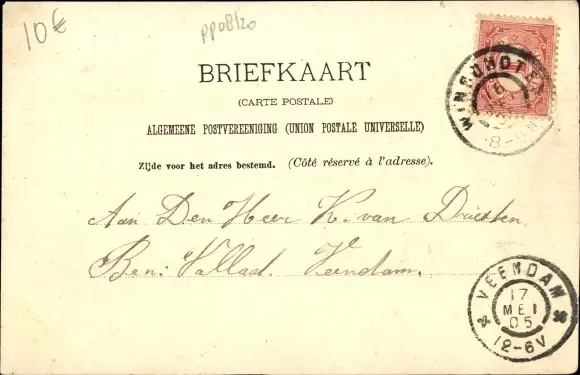 10€
PP08120
BRIEFKAART
(CARTE POSTALE)
ALGEMEENE POSTVEREENIGING (UNION POSTALE UNIVERSELLE)
Zijde voor het adres bestemd. (Côté réservé à l'adresse).
Aan Den Heer K. van Driesten
Ben: Vallaat. Veendam.
WINSCHOTEN
16
8-
VEENDAM
17
MEI
05
12-6V